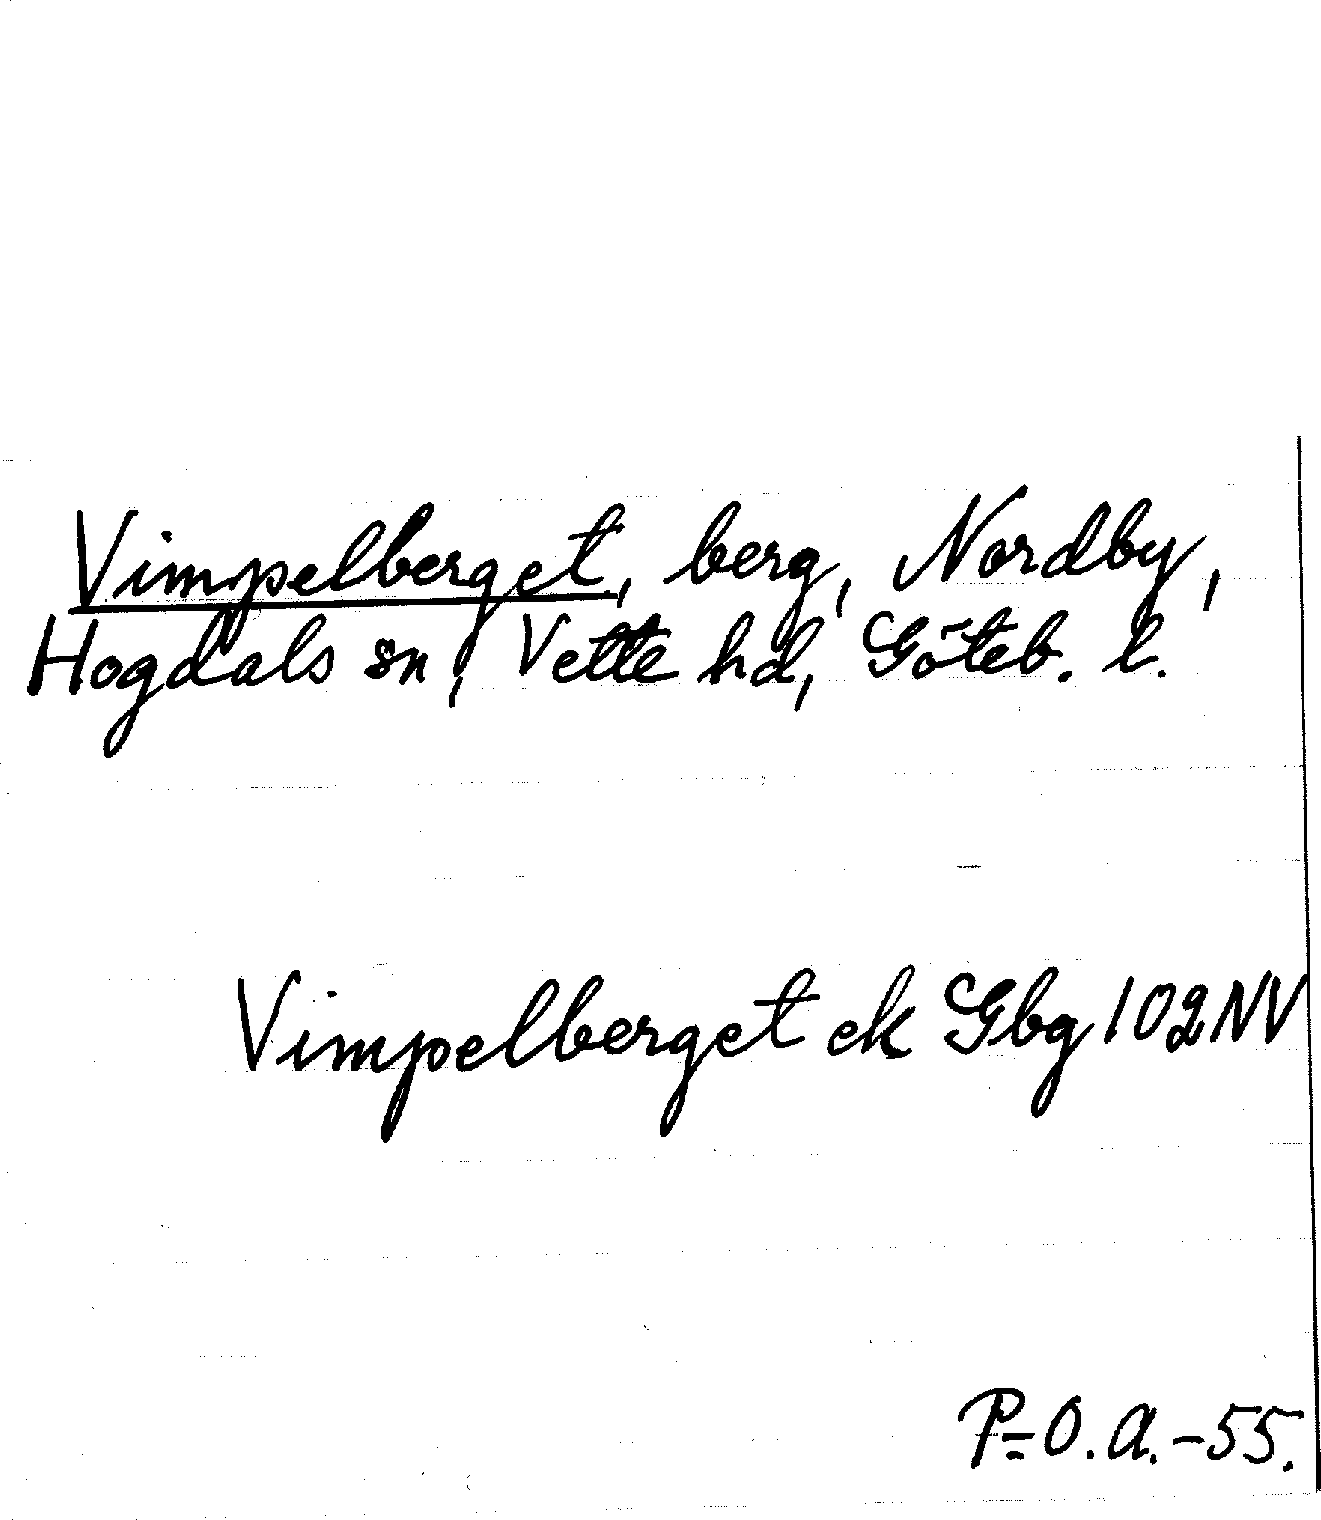 Vimpelberget, berg, Nordby,
Hogdals sn, Vette hd, Göteb. l.
Vimpelberget ek Gbg 102NV
P-O.A.-55.